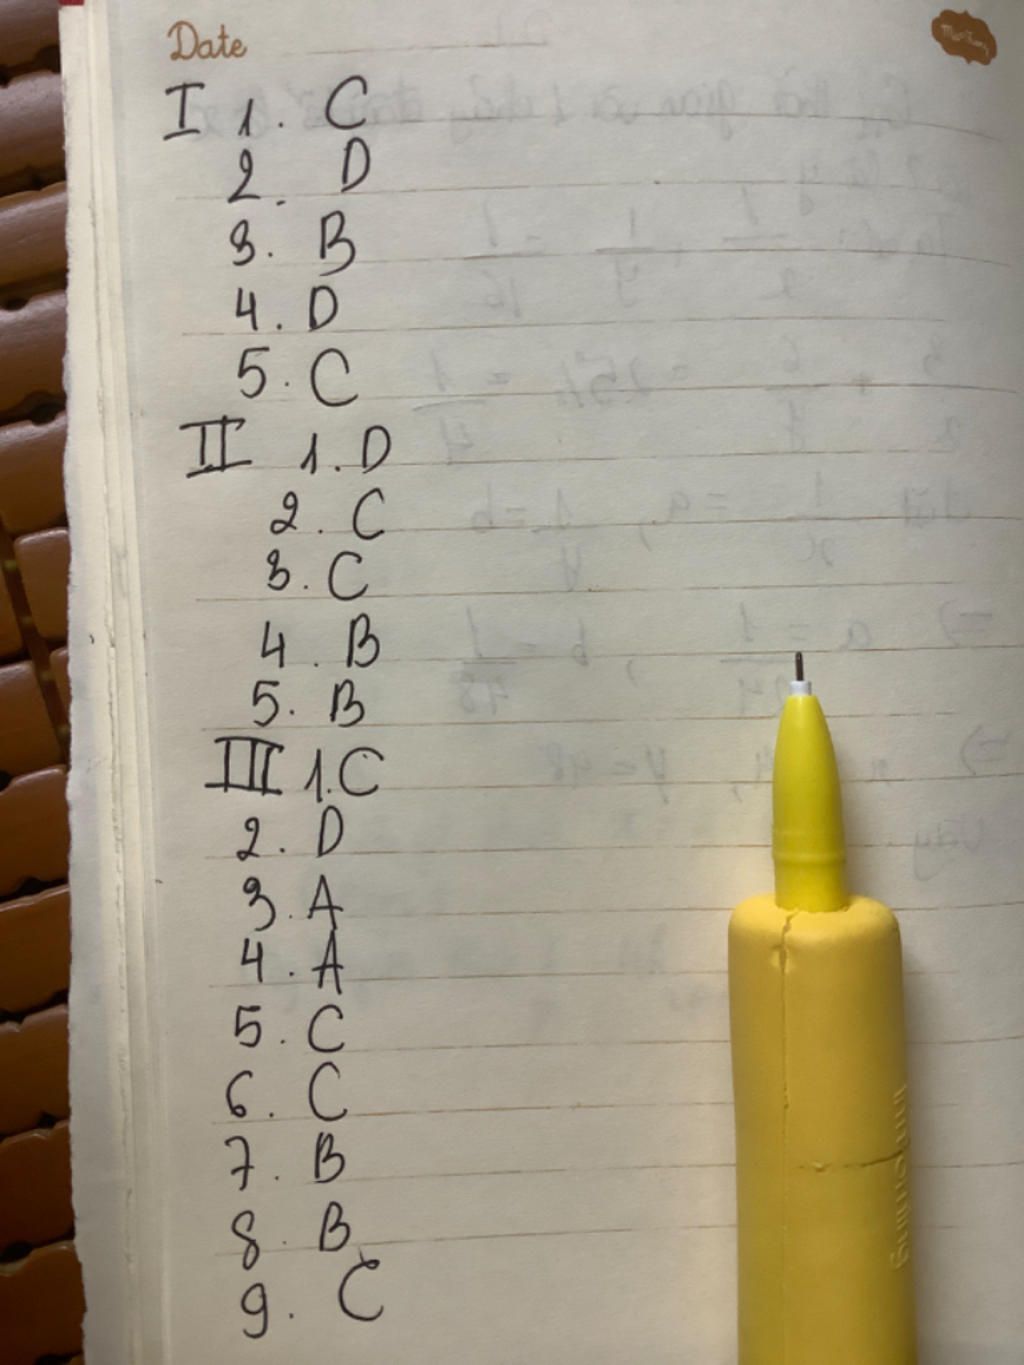 Date
I 1. C
2. D
3. B
4. D
5. C
II 1. D
2. C
3. C
4. B
5. B
III 1. C
2. D
3. A
4. A
5. C
6. C
7. B
8. B
9. C